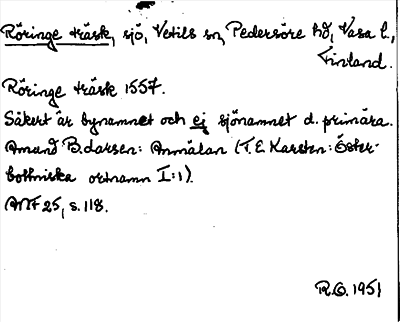 Röringe träsk, sjö, Vetils sn, Pedersöre hd, Vasa l.,
Finland.
Röringe träsk 1557.
Säkert är bynamnet och ej sjönamnet d. primära.
Amund B. Larsen: Anmälan (T. E. Karsten: Öster-
bottniska ortnamn I:1).
ANF 25, s. 118.
R.O. 1951